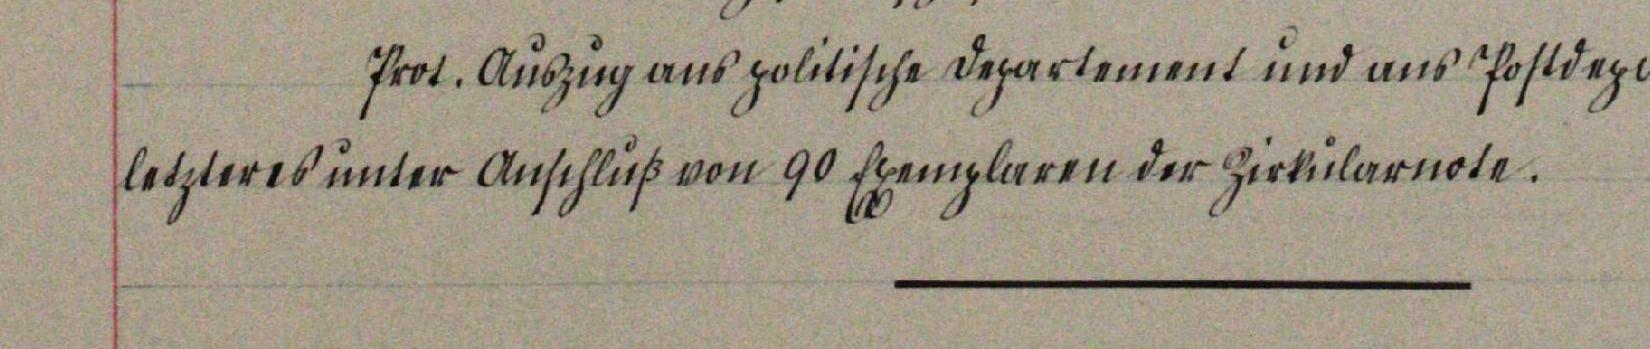 Prot. Auszug ans politische Departement und ans Postdep
letzteres unter Anschluß von 90 Exemplaren der Zirkularnote.